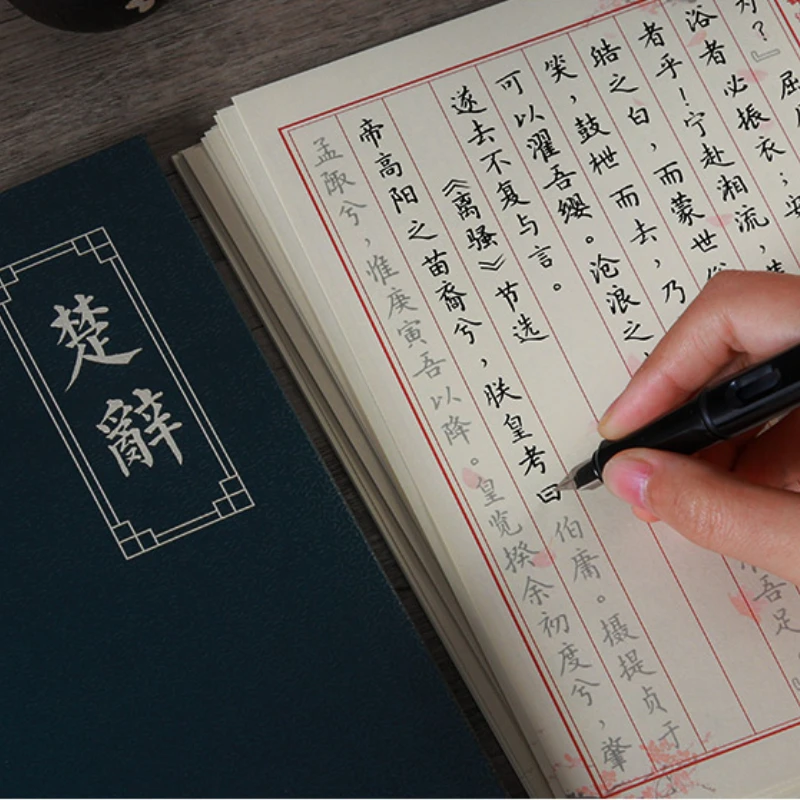 楚辭
为？『屈
浴者必振衣；安
者乎！宁赴湘流，
皓之白，而蒙世俗
笑，鼓枻而去，乃
可以濯吾缨。沧浪之 吾足
遂去不复与言。
《离骚》节选
帝高阳之苗裔兮，朕皇考曰伯庸。摄提贞于
孟陬兮，惟庚寅吾以降。皇览揆余初度兮，肇